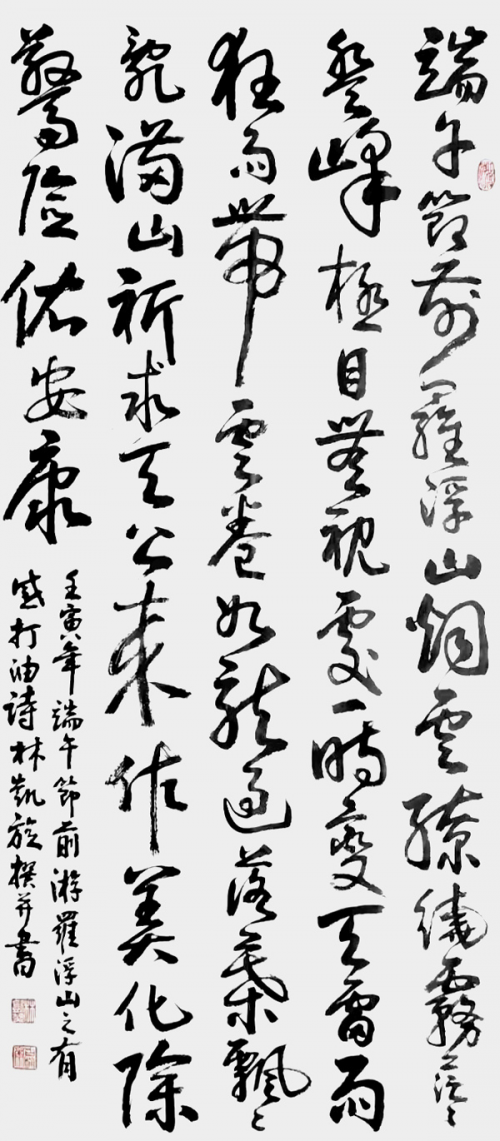 端午節前羅浮山烟雲繚繞霧茫々
登峰極目無視處一時變天雷雨
狂雨帶雲卷如龍過落葉飄々
亂滿山祈求天公來作美化除
驚險佑安康
壬寅年端午節前游羅浮山之有
感打油詩林凱旋撰并書